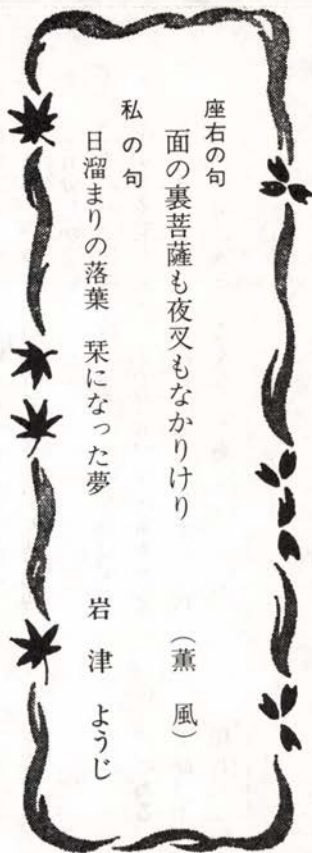 座右の句
面の裏菩薩も夜叉もなかりけり　（薫　風）
私の句
日溜まりの落葉　栞になった夢　岩　津　ようじ